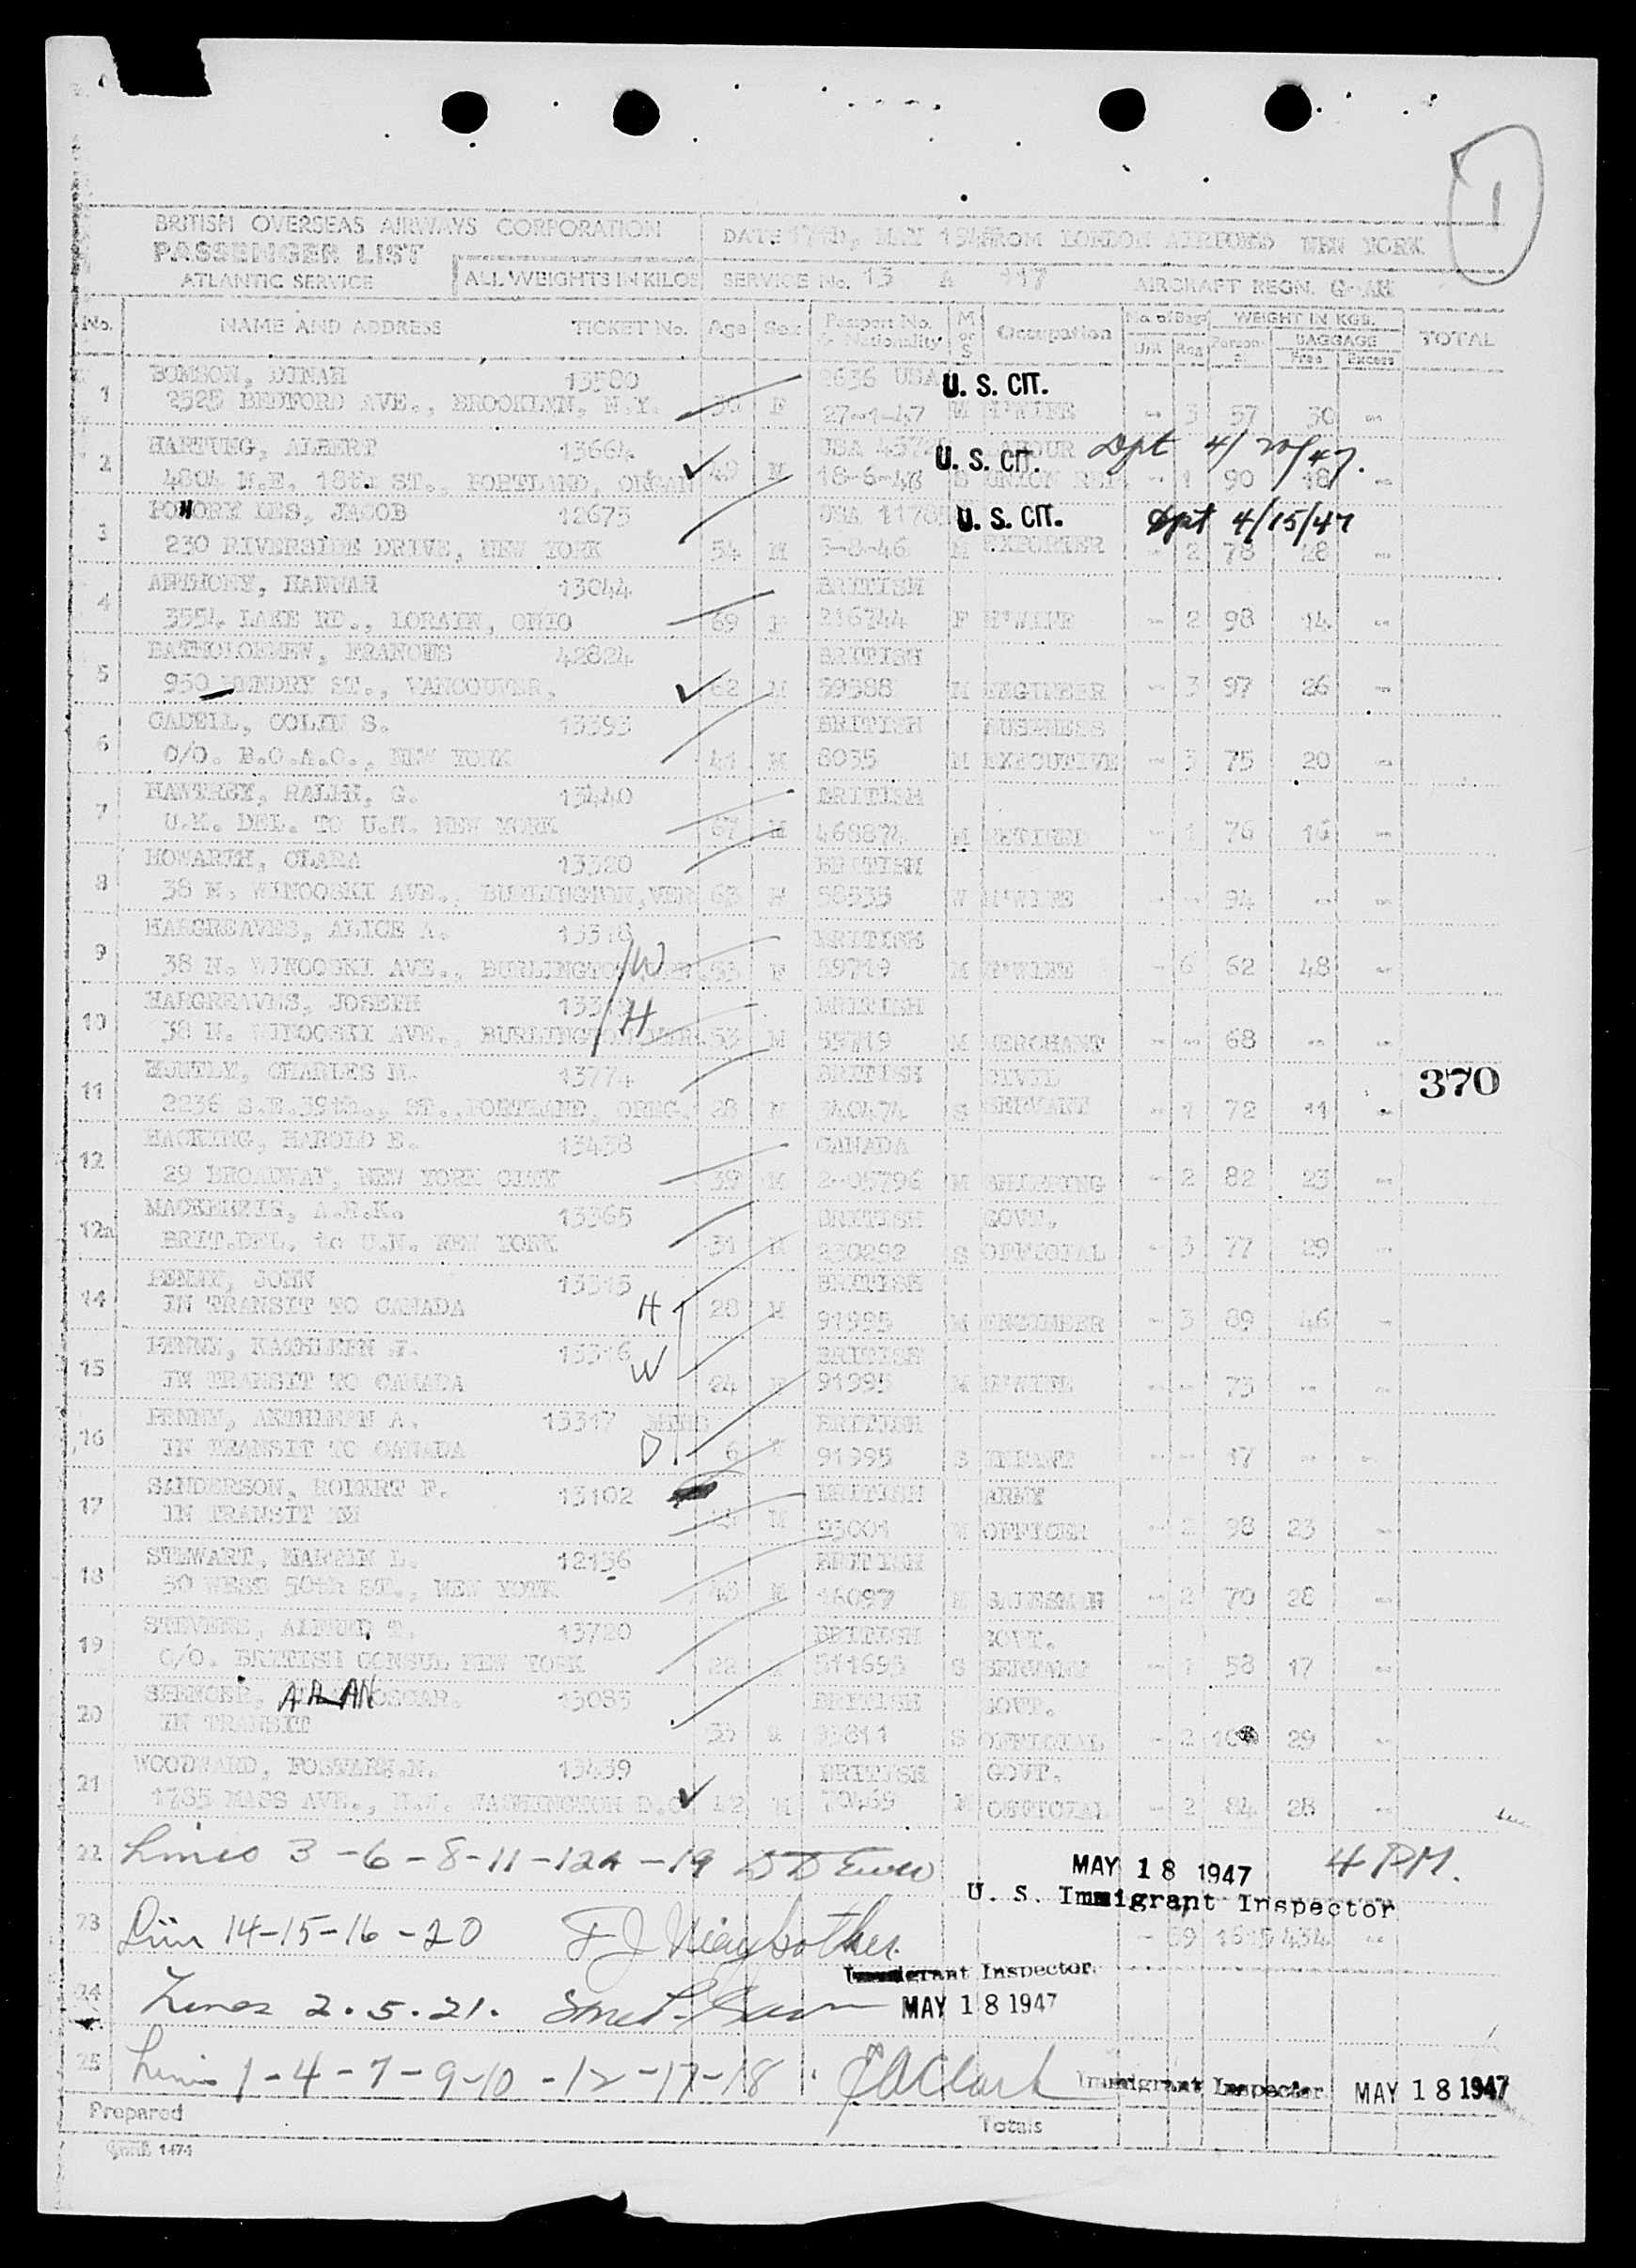 1
BRITISH OVERSEAS AIRWAYS CORPORATION
PASSENGER LIST
ATLANTIC SERVICE
ALL WEIGHTS IN KILOS
DATE MAY FROM LONDON AIRPORT NEW YORK
SERVICE No. 13 A 117
AIRCRAFT REGN. G-AH
No. NAME AND ADDRESS TICKET No. Age Sex Passport No. & Nationality M or S Occupation No. of Bags WEIGHT IN KGS. BAGGAGE Free Excess TOTAL
1 DINAH 13580 2636 USA U. S. CIT.
2525 BEDFORD AVE., BROOKLYN, N.Y. F 27-1-47 M H'WIFE - 3 57 30 -
2 HARTUNG, ALBERT 13664 USA U. S. CIT. LABOUR Dpt 4/20/47.
4804 N.E. 18th ST., PORTLAND, 49 M 18-6-46 S UNION REP. - 1 90 18 -
3 JACOB 12675 USA U. S. CIT. Dpt 4/15/47
230 RIVERSIDE DRIVE, NEW YORK 54 M 5-8-46 M EXPORTER - 2 78 28 -
4 ANTHONY, HANNAH 13044 BRITISH
3554 LAKE RD., LORAIN, OHIO 69 F 216744 F H'WIFE - 2 98 14 -
5 FRANCIS 42824 BRITISH
950 HENDRY ST., VANCOUVER, 62 M 59588 M ENGINEER - 3 97 26 -
6 CADELL, COLIN S. 13393 BRITISH BUSINESS
C/O. B.O.A.C., NEW YORK 41 M 8035 M EXECUTIVE - 3 75 20 -
7 HAWTREY, RALPH, G. 13440 BRITISH
U.K. DEL. TO U.N. NEW YORK 67 M 468874 M RETIRED - 1 76 16 -
8 HOWARTH, CLARA 13320 BRITISH
38 N. WINOOSKI AVE., BURLINGTON, VER 63 F 58535 W H'WIFE - - 94 - -
9 HARGREAVES, ALICE A. 13318 BRITISH
38 N. WINOOSKI AVE., BURLINGTON W 53 F 59719 M H'WIFE - 6 62 48 -
10 HARGREAVES, JOSEPH 13319 BRITISH
38 N. WINOOSKI AVE., BURLINGTON VER. H 53 M 59719 M MERCHANT - - 68 - -
11 HUNTLY, CHARLES M. 13774 BRITISH CIVIL 370
2236 S.E. 39th., ST., PORTLAND, OREG. 28 M 240474 S SERVANT - 1 72 11 -
12 HACKING, HAROLD E. 13438 CANADA
29 BROADWAY, NEW YORK CITY 39 M 2-05796 M SHIPPING - 2 82 23 -
12a MACKENZIE, A.R.K. 13365 BRITISH GOVT.
BRIT.DEL. to U.N. NEW YORK 31 M 230292 S OFFICIAL - 3 77 29 -
14 PENNY, JOHN 13315 BRITISH
IN TRANSIT TO CANADA H 28 M 91995 M ENGINEER - 3 89 46 -
15 PENNY, KATHLEEN F. 13316 BRITISH
IN TRANSIT TO CANADA W 24 F 91995 M H'WIFE - - 73 - -
16 PENNY, A. 13317 BRITISH
IN TRANSIT TO CANADA D 6 91995 S INFANT - - 17 - -
17 SANDERSON, ROBERT F. 13102 BRITISH ARMY
IN TRANSIT M 93001 M OFFICER - 2 98 23 -
18 STEWART, L. 12156 BRITISH
30 WEST 50th ST., NEW YORK 43 M 16097 M SALESMAN - 2 70 28 -
19 STEVENS, ALFRED T. 13720 BRITISH GOVT.
C/O. BRITISH CONSUL NEW YORK 22 311693 S SERVANT - 1 58 17 -
20 SPENCER, ALAN OSCAR. 13085 BRITISH GOVT.
IN TRANSIT M S OFFICIAL - 2 29 -
21 WOODWARD, 13439 BRITISH GOVT.
1785 MASS AVE., N.W. WASHINGTON D.C. 42 M 70469 M OFFICIAL - 2 84 28 -
22 Lines 3-6-8-11-12A-19 MAY 18 1947 4 PM.
U. S. Immigrant Inspector
23 Lin 14-15-16-20 F J 434 -
Immigrant Inspector.
24 Lines 2.5.21. MAY 18 1947
25 Lines 1-4-7-9-10-12-17-18 Clark Immigrant Inspector MAY 18 1947
Prepared Totals
1474